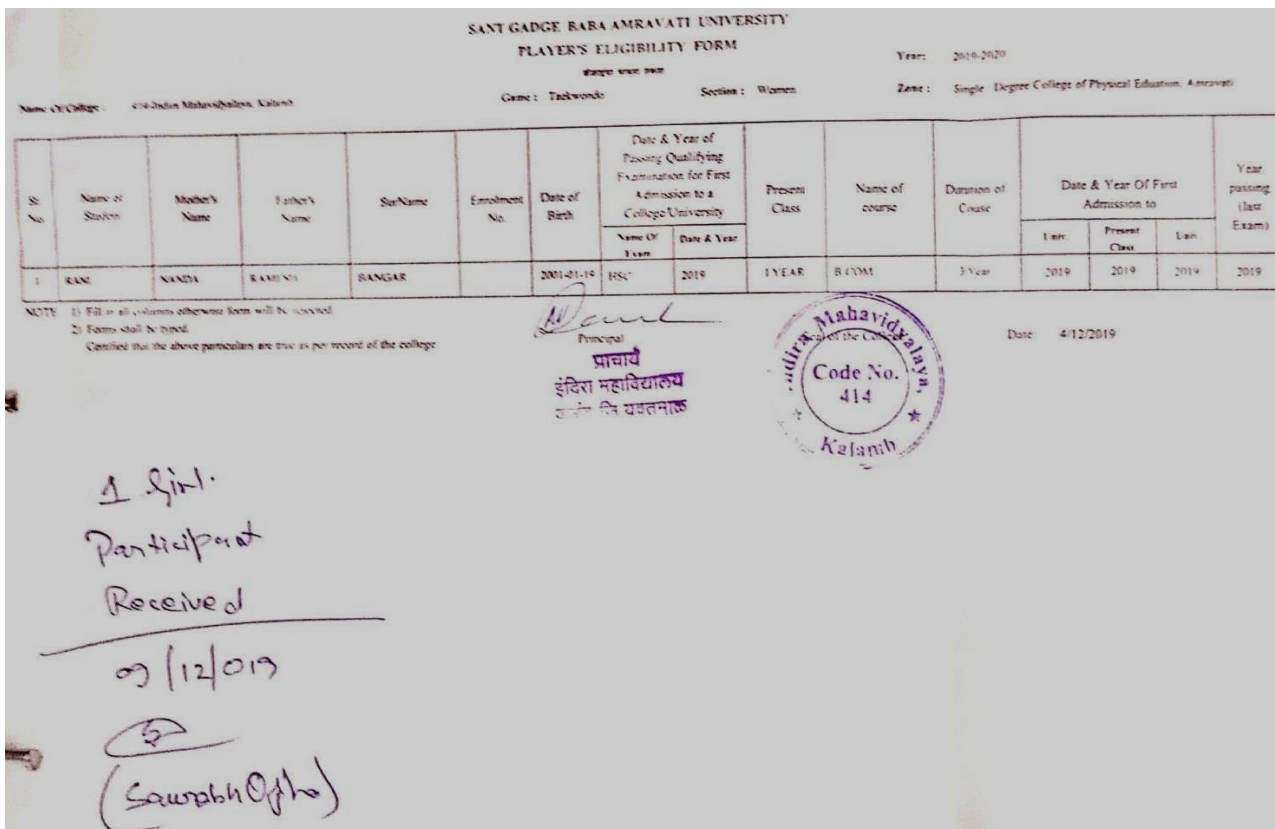 SANT GADGE BABA AMRAVATI UNIVERSITY
PLAYER'S ELIGIBILITY FORM
Year: 2019-2020
Name Of College : 414-Indira Mahavidyalaya, Kalamb Game : Taekwondo Section : Women Zone : Single Degree College of Physical Eduation, Amravati
Sr. No. Name of Student Mother's Name Father's Name SurName Enrolment No. Date of Birth Date & Year of Passing Qualifying Examination for First Admission to a College/University Present Class Name of course Duration of Couse Date & Year Of First Admission to Year passing (last Exam)
Name Of Exam Date & Year Univ. Present Class Univ.
1 RANI NANDA BANGAR 2001-01-19 HSC 2019 I YEAR B.COM. 3 Year 2019 2019 2019 2019
NOTE 1) Fill in all columns otherwise form will be rejected
2) Forms shall be typed.
Certified that the above particulars are true as per record of the college
Principal
प्राचार्य
इंदिरा महाविद्यालय
जि यवतमाळ
Mahavidyalaya,
of the College
Code No.
414
Kalamb
Date 4/12/2019
1 Girl.
Participant
Received
09/12/019
(Saurabh Ojha)